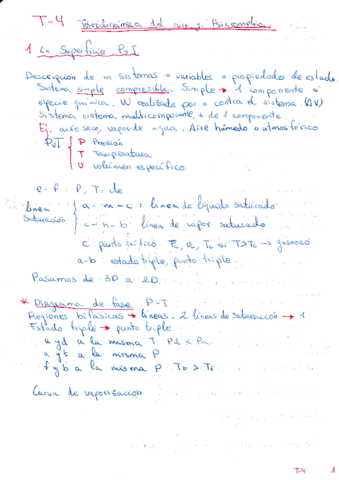 T-4 Termodinámica del aire y Psicrometría.
1 La Superficie PvT
Descripción de un sistemas → variables o propiedades de estado.
Sistema simple compresible. Simple → 1 componente o
especie química. W realizado por o contra el sistema (ΔV)
Sistema sistema multicomponente, + de 1 componente.
Ej. aire seco, vapor de agua. Aire húmedo o atmosférico
PvT P Presión
T Temperatura
v volumen específico.
línea saturación
a-m-c: línea de líquido saturado
c-n-b: línea de vapor saturado
c punto crítico Pc, vc, Tc si T>Tc → gaseoso
a-b: estado triple, punto triple.
Pasamos de 3D a 2D
* Diagrama de fase P-T
Regiones bifásicas → líneas. 2 líneas de saturación → 1
Estado triple → punto triple
a y d a la misma T Pd < Pa
a y t a la misma P
f y b a la misma P Tb > Tf
Curva de vaporización
T-4 1